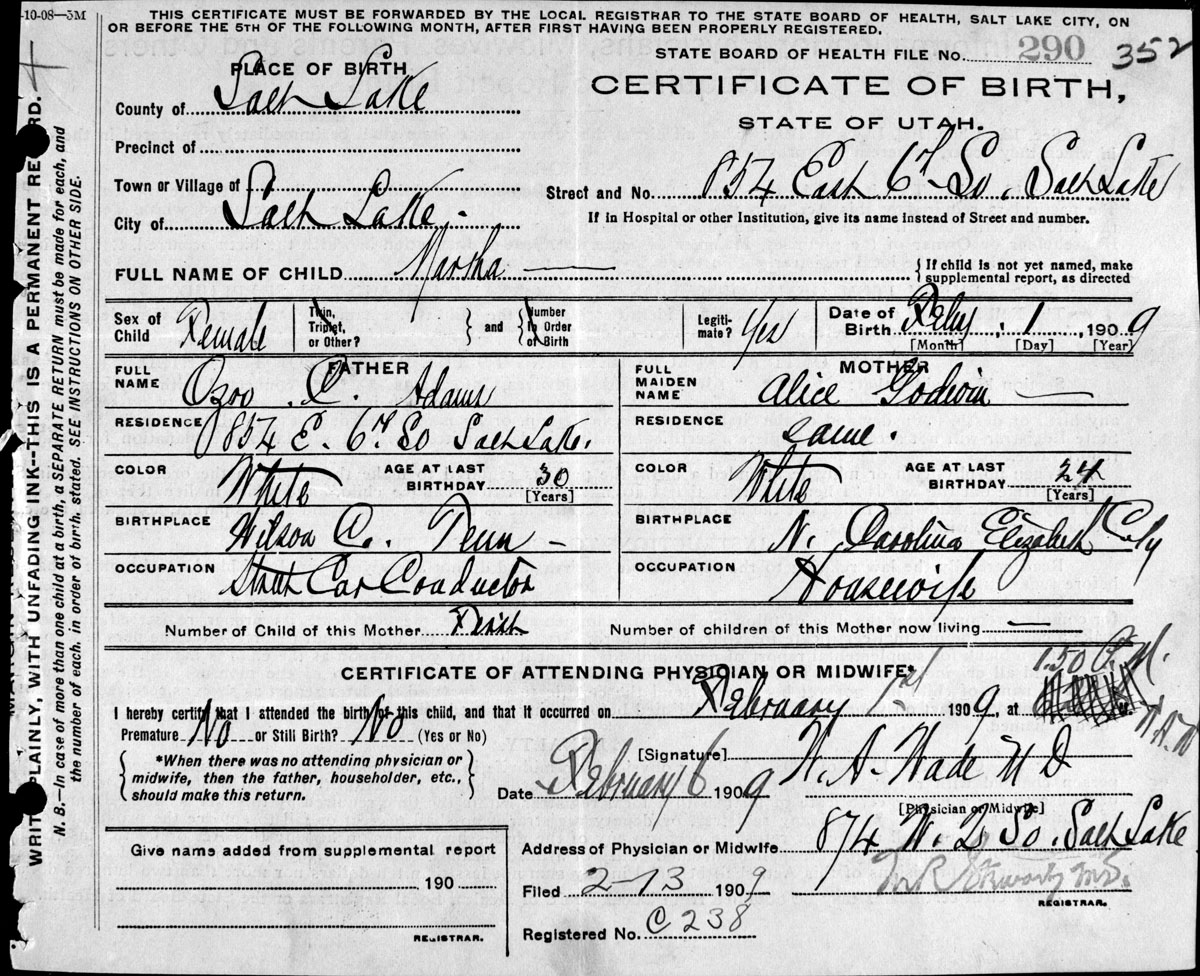 -10-08—3M
THIS CERTIFICATE MUST BE FORWARDED BY THE LOCAL REGISTRAR TO THE STATE BOARD OF HEALTH, SALT LAKE CITY, ON
OR BEFORE THE 5TH OF THE FOLLOWING MONTH, AFTER FIRST HAVING BEEN PROPERLY REGISTERED.
STATE BOARD OF HEALTH FILE NO. 290 352
PLACE OF BIRTH
CERTIFICATE OF BIRTH,
STATE OF UTAH.
County of Salt Lake
Precinct of
Town or Village of
Street and No. 854 East 6th So. Salt Lake
City of Salt Lake.
If in Hospital or other Institution, give its name instead of Street and number.
FULL NAME OF CHILD Martha
{ If child is not yet named, make
supplemental report, as directed
Sex of Child Female
Twin, Triplet, or Other? } and { Number in Order of Birth
Legiti-mate? Yes
Date of Birth Feby. 1, 1909
[Month] [Day] [Year]
FATHER
FULL NAME C. Adams
RESIDENCE 854 E. 6th So Salt Lake.
COLOR White AGE AT LAST BIRTHDAY 30 [Years]
BIRTHPLACE Wilson Co. Tenn —
OCCUPATION Street Car Conductor
MOTHER
FULL MAIDEN NAME Alice Godwin
RESIDENCE same.
COLOR White AGE AT LAST BIRTHDAY 24 [Years]
BIRTHPLACE N. Carolina Elizabeth City
OCCUPATION Housewife
Number of Child of this Mother First
Number of children of this Mother now living —
CERTIFICATE OF ATTENDING PHYSICIAN OR MIDWIFE*
I hereby certify that I attended the birth of this child, and that it occurred on February 1st 1909, at 1.50 M.
Premature No or Still Birth? No (Yes or No)
{ *When there was no attending physician or
midwife, then the father, householder, etc.,
should make this return. }
[Signature] W. A. Wade M D
Date February 6 1909
[Physician or Midwife]
Address of Physician or Midwife 874 W. 2 So. Salt Lake
Give name added from supplemental report
190
REGISTRAR.
Filed 2-13 1909
REGISTRAR.
Registered No. C 238
WRITE PLAINLY, WITH UNFADING INK--THIS IS A PERMANENT RECORD.
N. B.—In case of more than one child at a birth, a SEPARATE RETURN must be made for each, and
the number of each, in order of birth, stated. SEE INSTRUCTIONS ON OTHER SIDE.